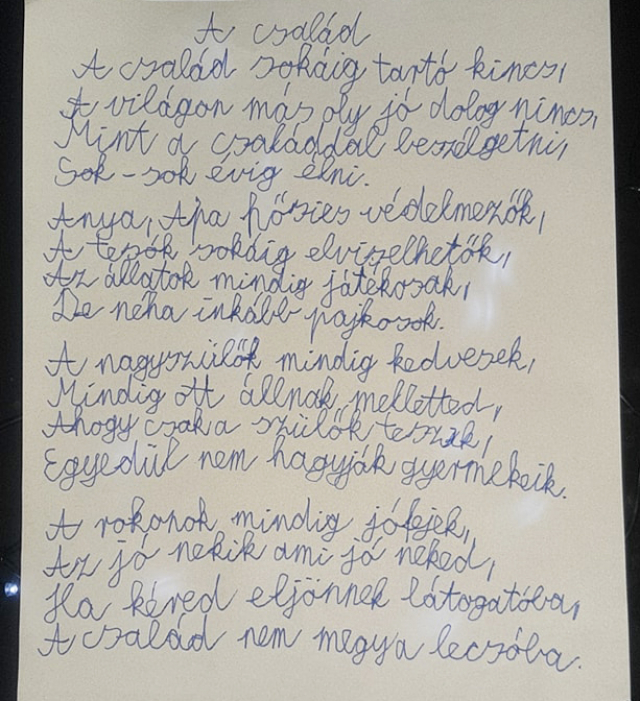 A család
A család sokáig tartó kincs,
A világon más oly jó dolog nincs,
Mint a családdal beszélgetni,
Sok-sok évig élni.
Anya, Apa hősies védelmezők,
A tesók sokáig elviselhetők,
Az állatok mindig játékosak,
De néha inkább pajkosok.
A nagyszülők mindig kedvesek,
Mindig ott állnak melletted,
Ahogy csak a szülők teszek,
Egyedül nem hagyják gyermekeik.
A rokonok mindig jófejek,
Az jó nekik ami jó neked,
Ha kéred eljönnek látogatóba,
A család nem megy a lecsóba.